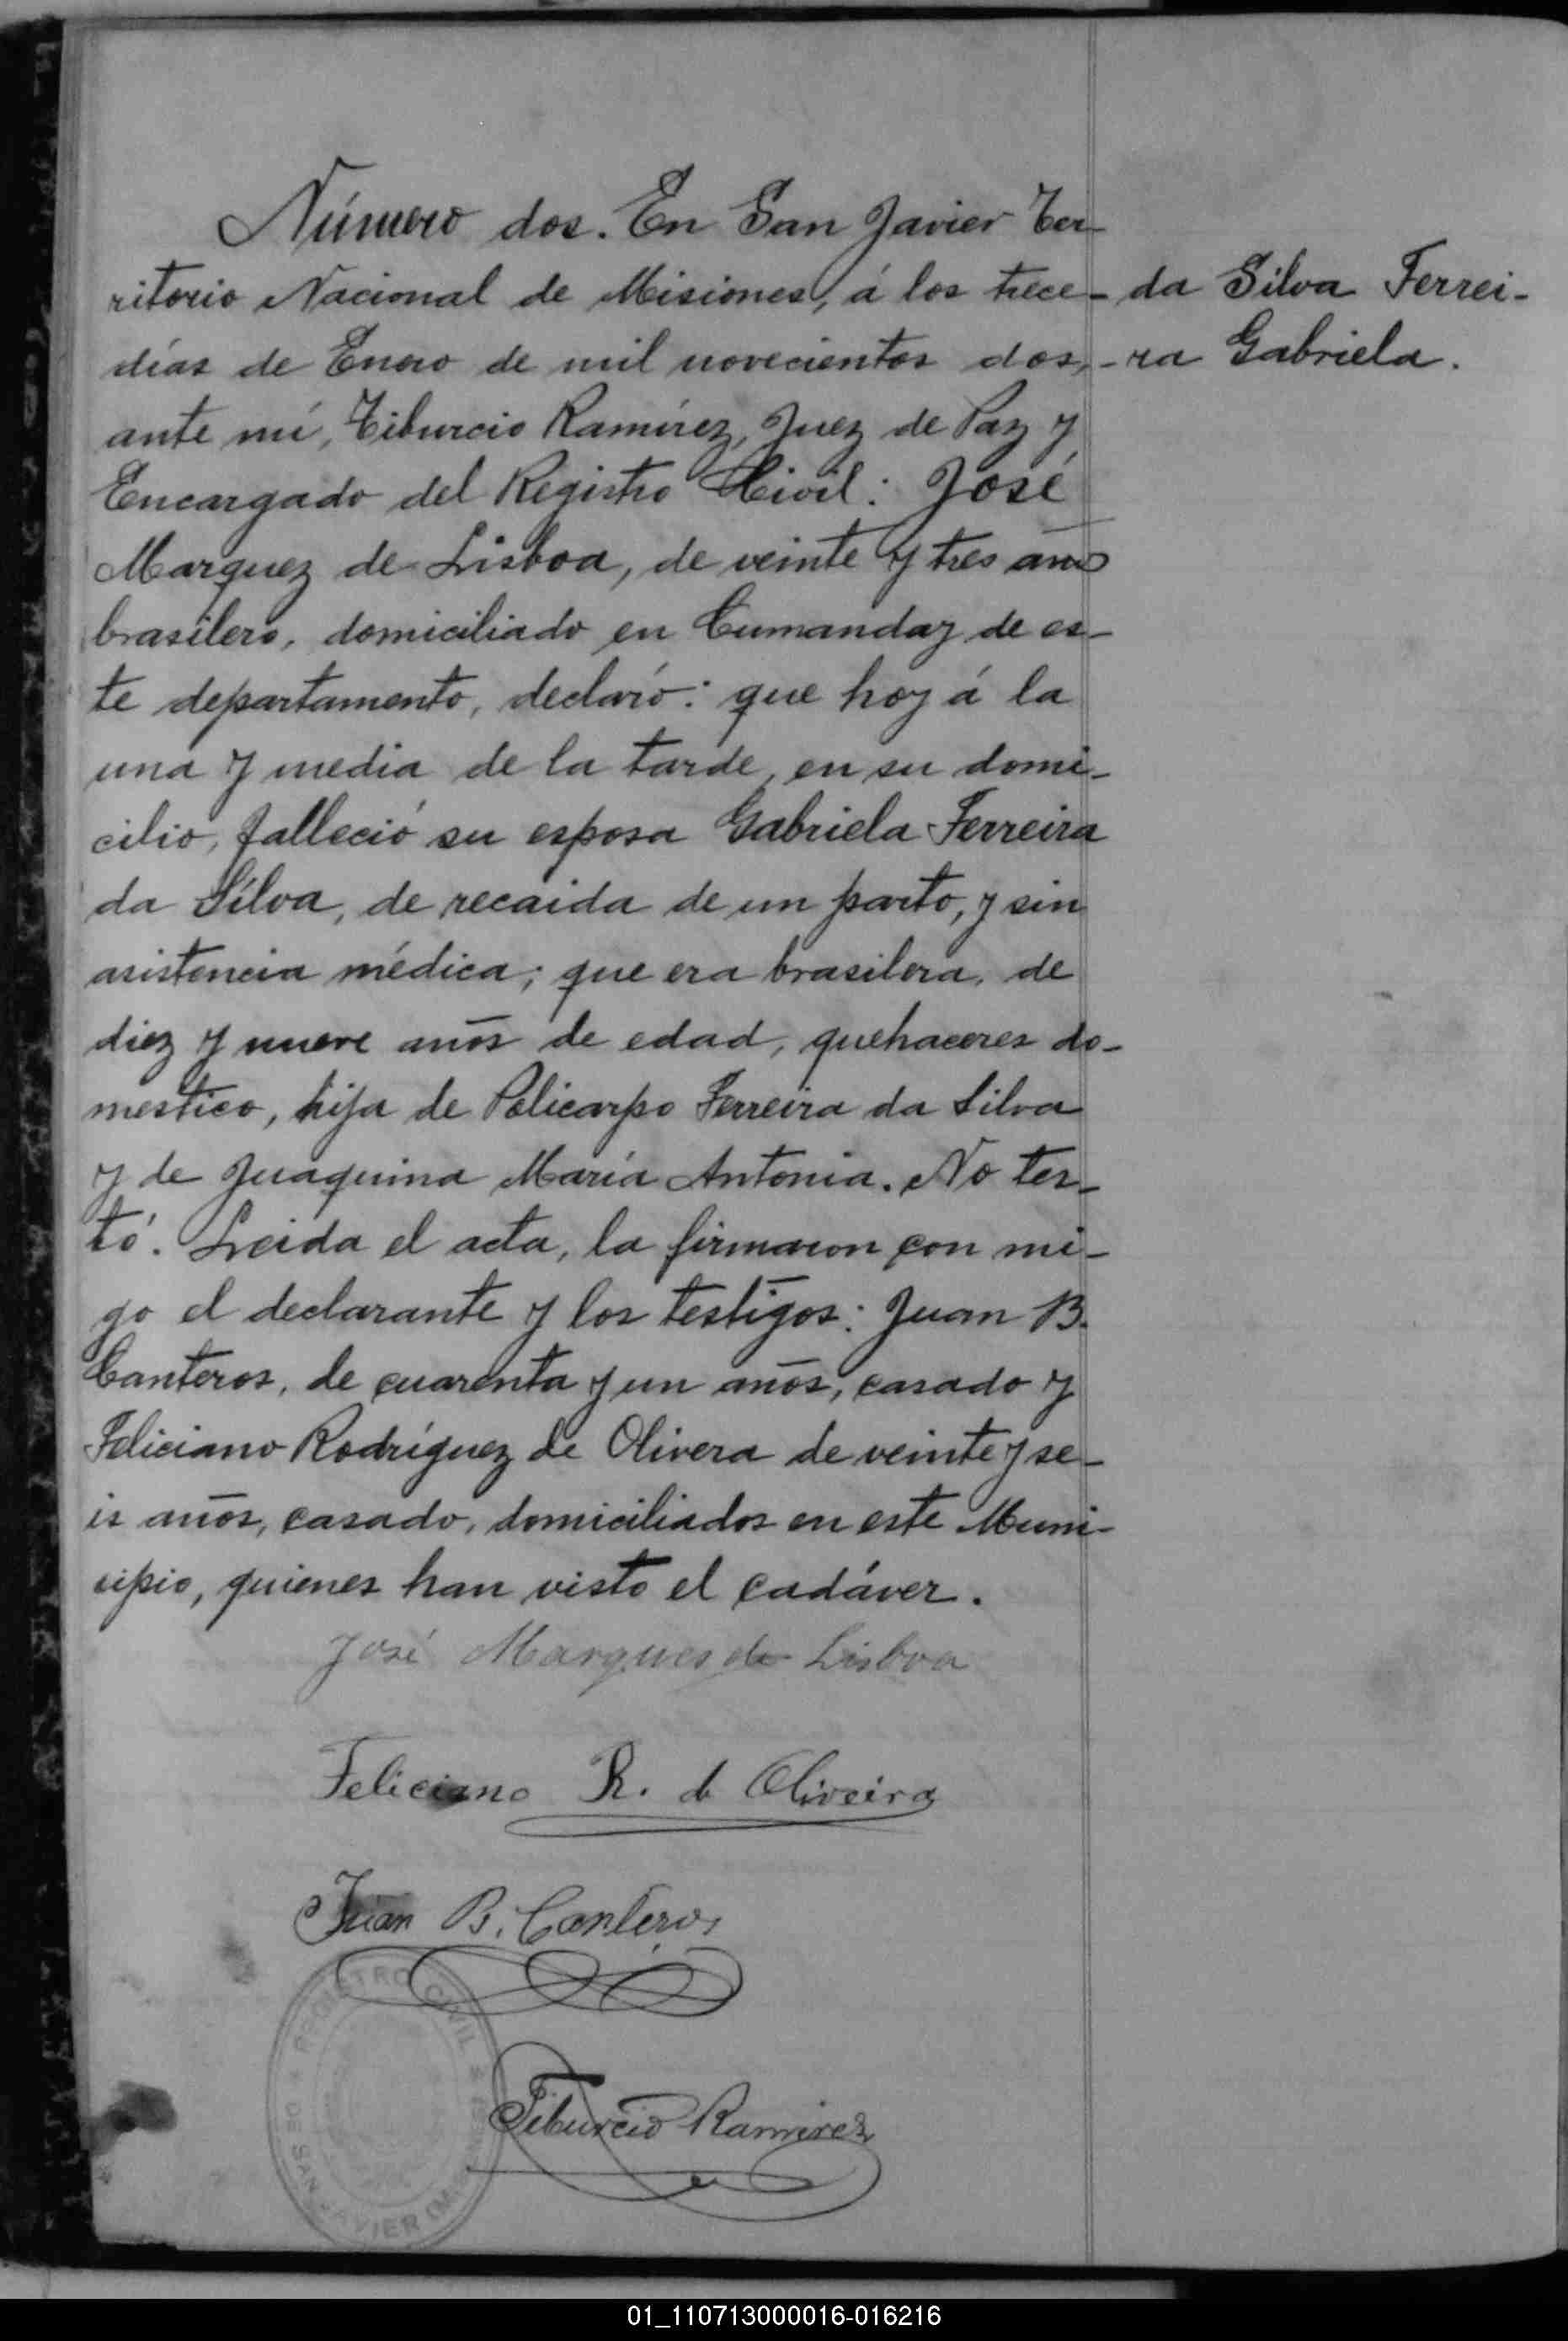 Número dos. En San Javier Ter-
ritorio Nacional de Misiones, á los trece-
días de Enero de mil novecientos dos,-
ante mí, Tiburcio Ramírez, Juez de Paz y
Encargado del Registro Civil: José
Marquez de Lisboa, de veinte y tres años
brasilero, domiciliado en Cumanday de es-
te departamento, declaró: que hoy á la
una y media de la tarde, en su domi-
cilio, falleció su esposa Gabriela Ferreira
da Silva, de recaida de un parto, y sin
asistencia médica; que era brasilera, de
diez y nueve años de edad, quehaceres do-
mestico, hija de Policarpo Ferreira da Silva
y de Juaquina María Antonia. No tes-
tó. Leida el acta, la firmaron con mi-
go el declarante y los testigos: Juan B.
Canteros, de cuarenta y un años, casado y
Feliciano Rodríguez de Olivera de veinte y se-
is años, casado, domiciliados en este Muni-
cipio, quienes han visto el cadáver.
da Silva Ferrei-
ra Gabriela.
José Marques de Lisboa
Feliciano R. de Oliveira
Juan B. Canteros
Tiburcio Ramirez
REGISTRO CIVIL
DE SAN JAVIER
01_110713000016-016216